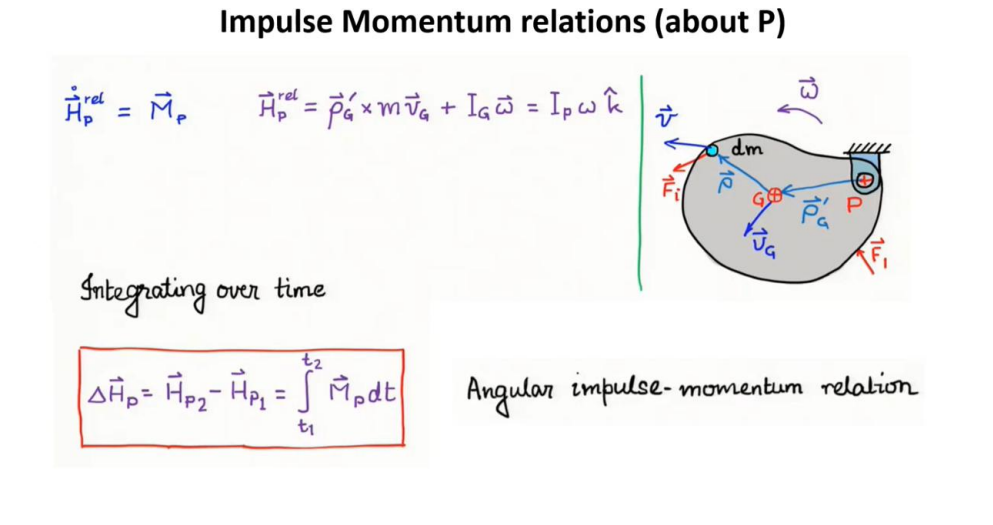 Impulse Momentum relations (about P)
Ḣ⃗ₚʳᵉˡ = M⃗ₚ
H⃗ₚʳᵉˡ = ρ⃗'_G × m v⃗_G + I_G ω⃗ = Iₚ ω k̂
ω⃗
v⃗
dm
F⃗ᵢ
ρ⃗
G
ρ⃗'_G
P
v⃗_G
F⃗₁
Integrating over time
ΔH⃗ₚ = H⃗ₚ₂ - H⃗ₚ₁ = ∫_{t₁}^{t₂} M⃗ₚ dt
Angular impulse-momentum relation